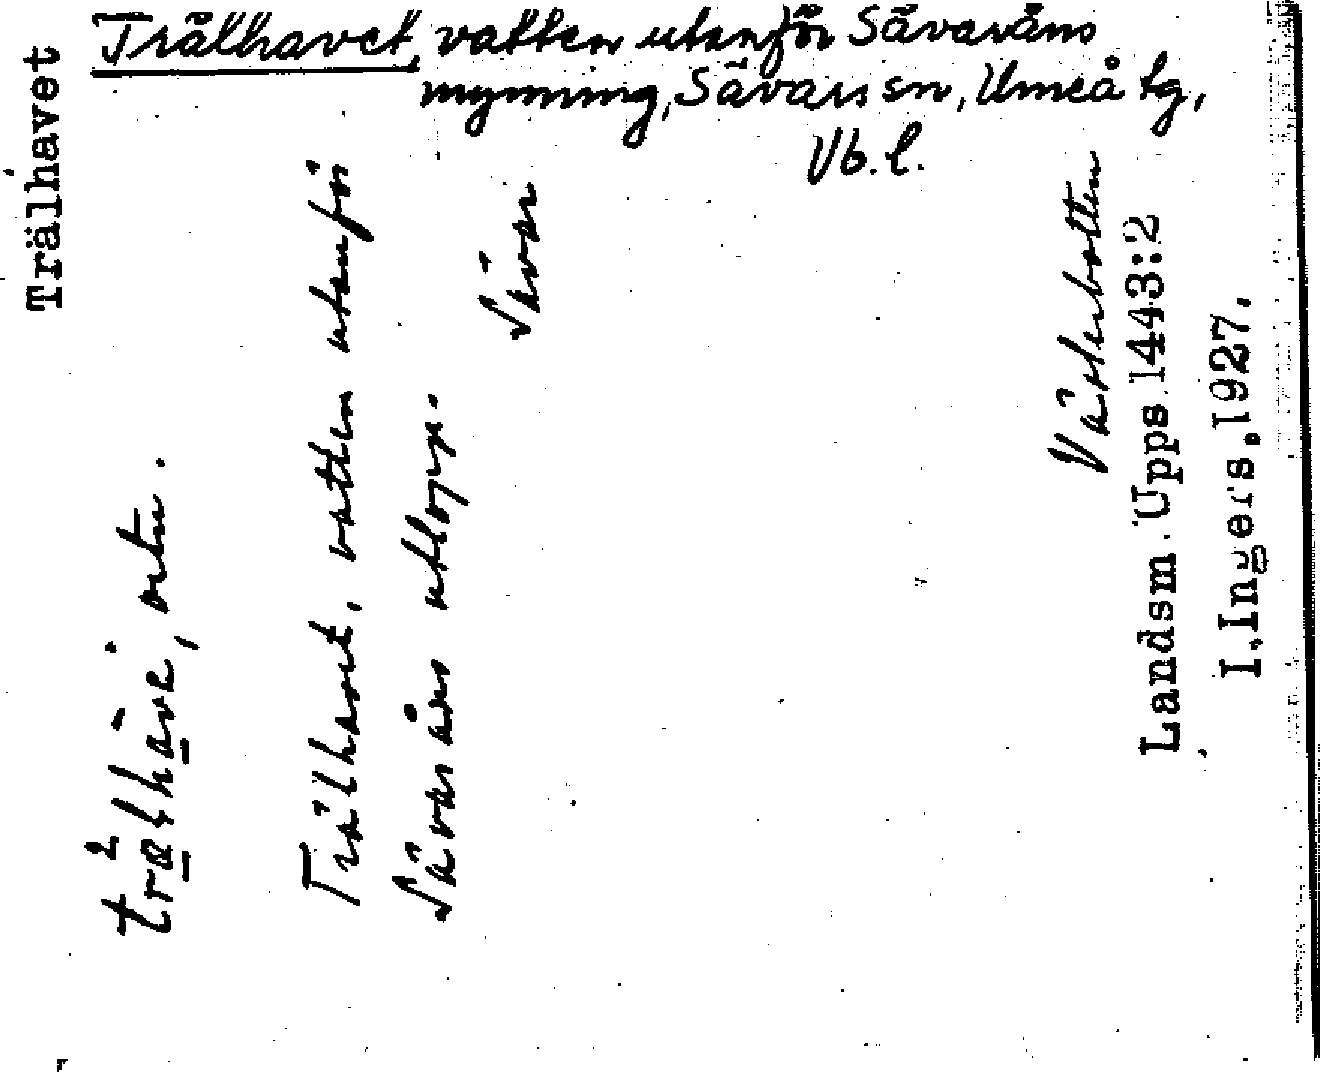 Trälhavet, vatten utanför Sävaråns
mynning, Sävars sn, Umeå tg,
Vb. l.
Trälhavet
Trälhavet, vatten utanför
Sävaråns utlopp.
Sävar
Västerbotten
Landsm. Upps. 1443:2
I. Ingers, 1927.